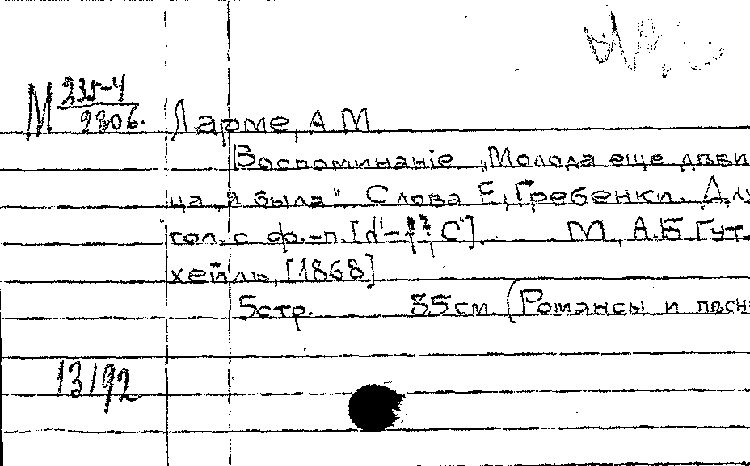 М 235-4
2806.
Ларме, А.М.
Воспоминаніе „Молода еще дѣви
ца я была" Слова Е. Гребенки. Для
гол. с ф.-п. М., А.Б. Гут
хейль, [1868]
5 стр. 35 см. (Романсы и пѣсни
13192